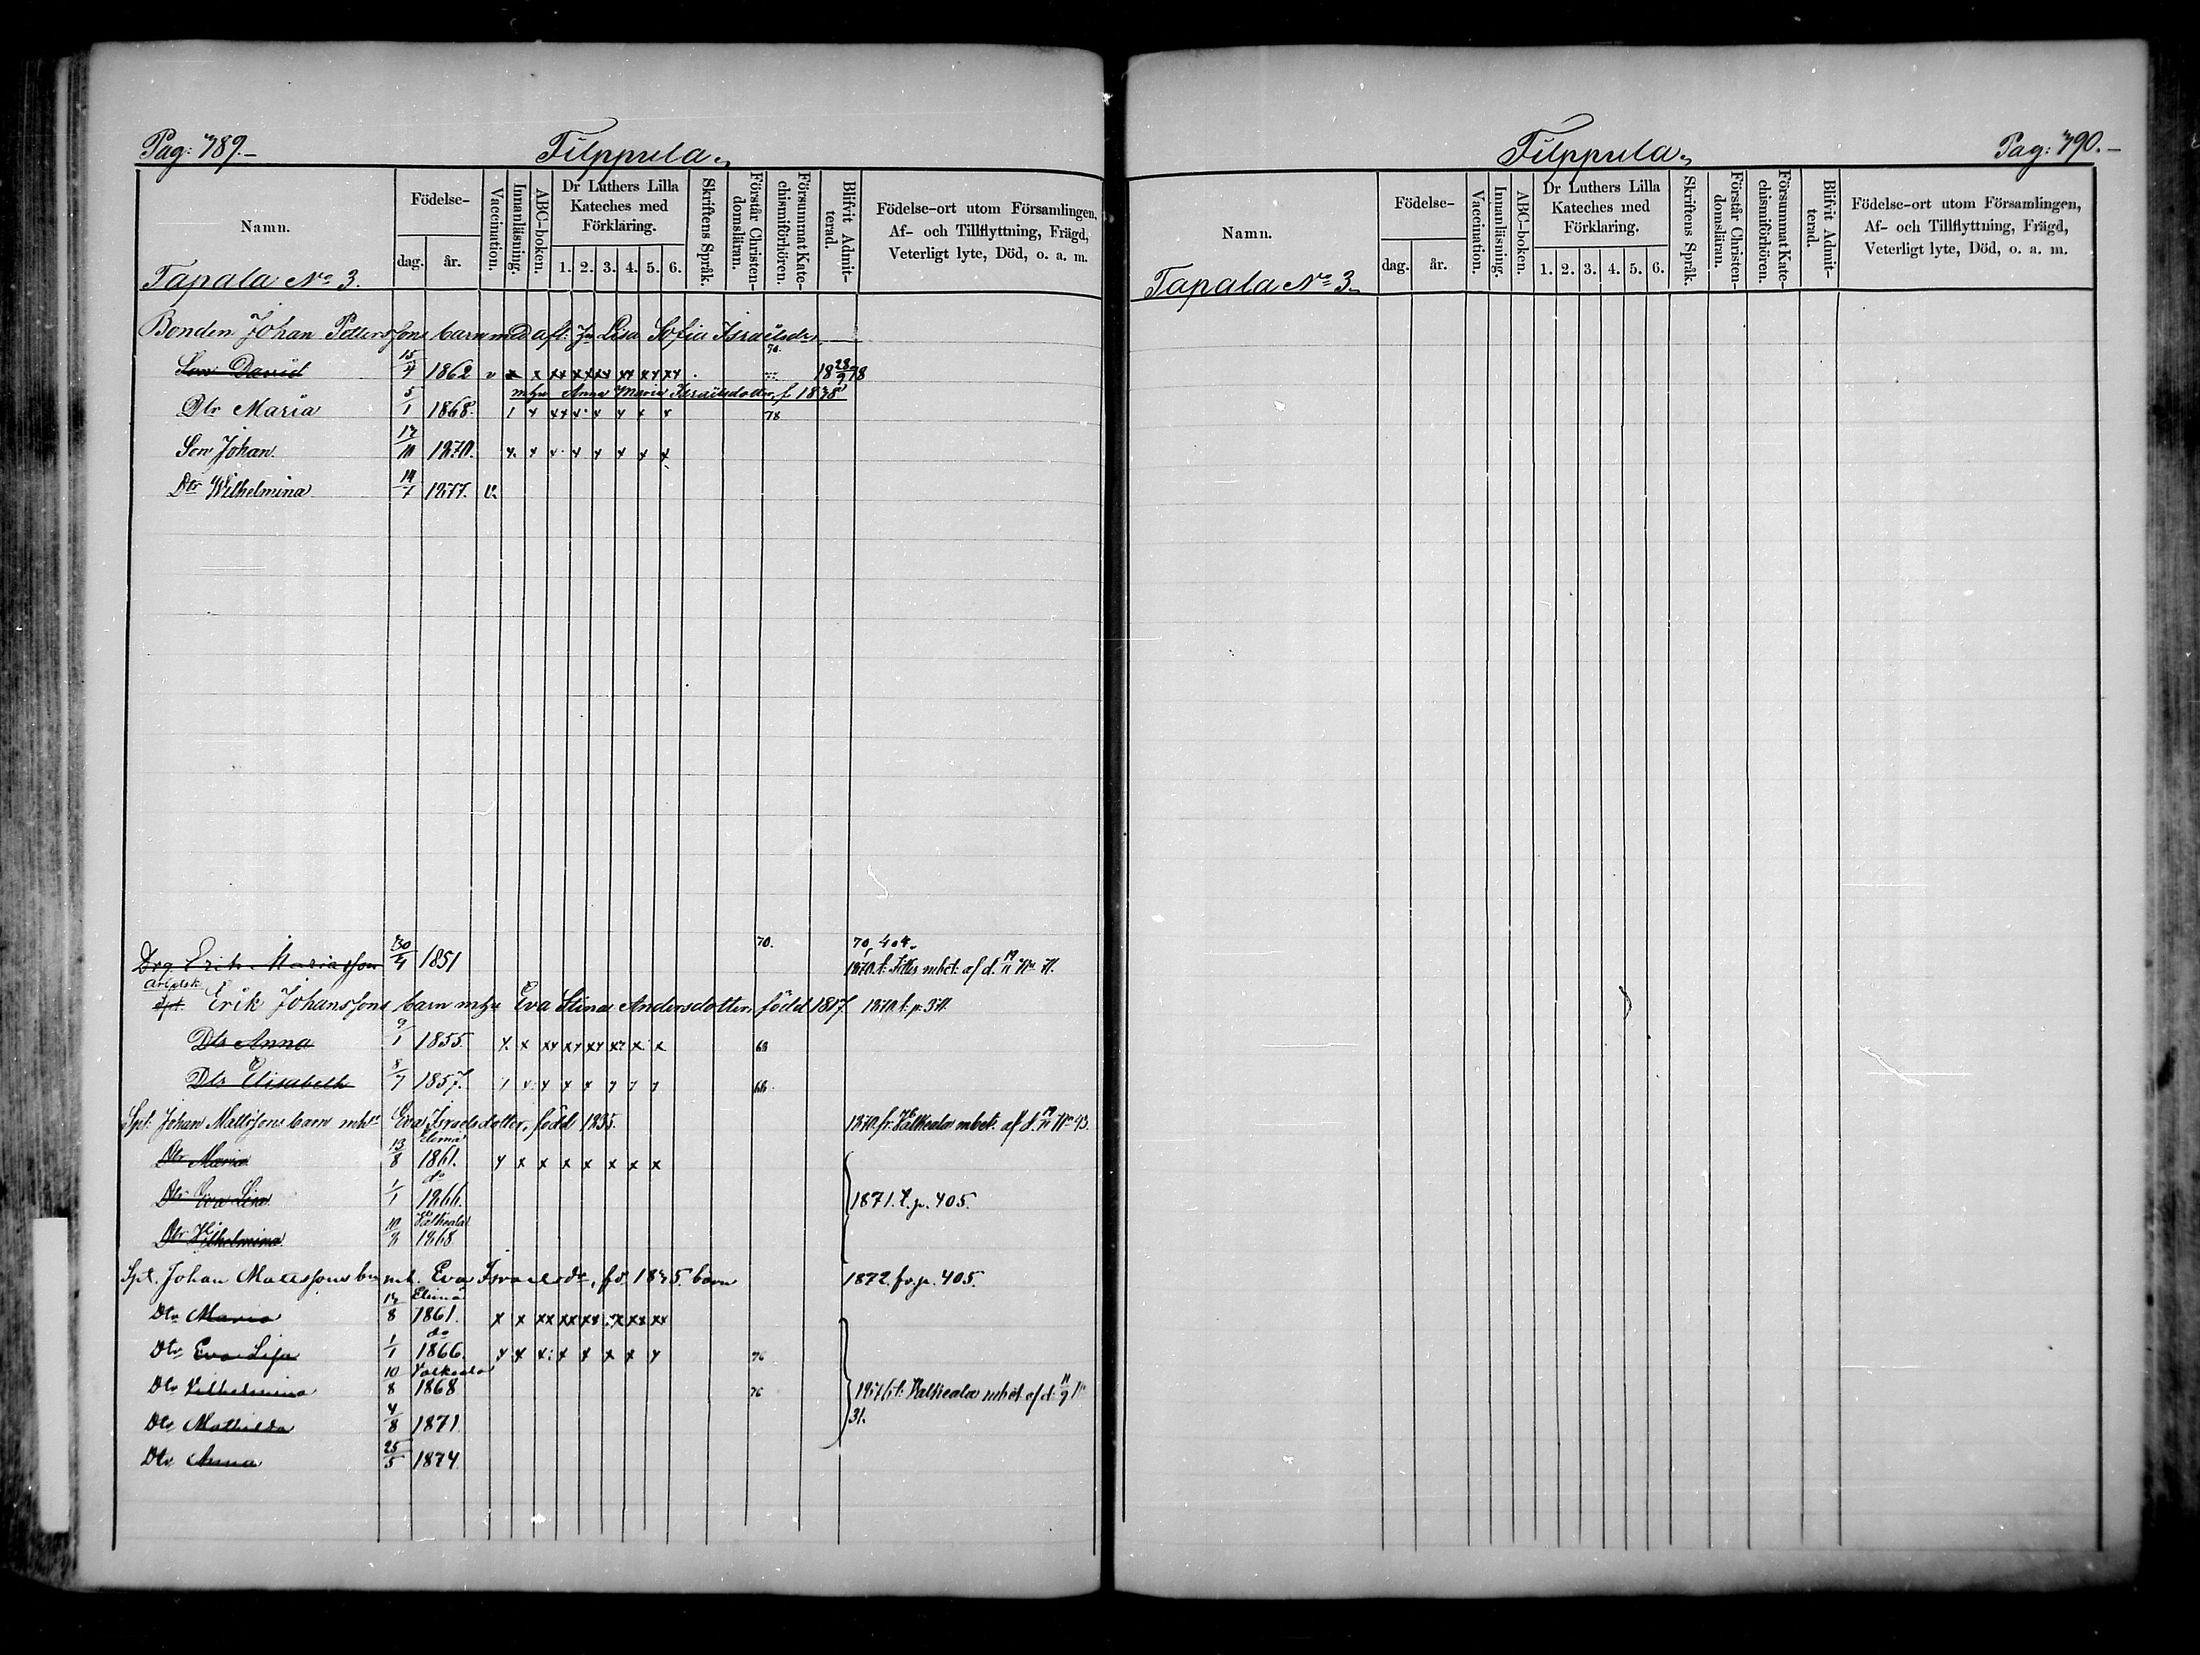 Pag: 789.–
Filppula.
Namn.
Födelse–
dag.
år.
Vaccination.
Innanläsning.
ABC–boken.
Dr Luthers Lilla
Kateches med
Förklaring.
1. 2. 3. 4. 5. 6.
Skriftens Språk.
Förstår Christen–
domsläran.
Försummat Kate–
chismiförhören.
Blifvit Admit–
terad.
Födelse–ort utom Församlingen,
Af– och Tillflyttning, Frägd,
Veterligt lyte, Död, o. a. m.
Tapala No 3.
Bonden Johan Petterssons barn med afl. Lisa Sofia Israelsdr
Son David 15/4 1862 v x x xx xx xx xx xx xx 18 23/9 78
mhu Anna Maria Israelsdotter, f 1838
Dtr Maria 5/1 1868. 78
Son Johan 1870.
Dtr Wilhelmina 1877. v.
Drg Erik Mariasson 30/4 1851 70. 70, 404.
Erik Johanssons barn mhu Eva Stina Andersdotter, född 1817.
Dtr Anna 9/1 1855.
Dtr Elisabeth 8/7 1857. 66.
Spt. Johan Mattssons barn mhu Eva Israelsdotter, född 1835. 1870. fr. Valkeala mbet. af d. 19/11 No 43.
Elimä
Dtr Maria 13/8 1861. x x x x x x x
do
Dtr Eva Lisa 1/1 1866. 1871. t. p. 405.
Valkeala
Dtr Wilhelmina 10/8 1868
Spt. Johan Matssons mh. Eva Israelsdr, fö. 1835. barn 1872. fr. p. 405.
Elimä
Dtr Maria 13/8 1861. x x xx xx xx xx xx xx
do
Dtr Eva Lisa 1/1 1866. 76
Valkeala
Dtr Vilhelmina 10/8 1868 76 1876 t. Valkeala mbet. af d. 11/9 No
31.
Dtr Mathilda 4/8 1871.
Dtr Anna 25/5 1874.
Filppula.
Pag: 790.–
Namn.
Födelse–
dag.
år.
Vaccination.
Innanläsning.
ABC–boken.
Dr Luthers Lilla
Kateches med
Förklaring.
1. 2. 3. 4. 5. 6.
Skriftens Språk.
Förstår Christen–
domsläran.
Försummat Kate–
chismiförhören.
Blifvit Admit–
terad.
Födelse–ort utom Församlingen,
Af– och Tillflyttning, Frägd,
Veterligt lyte, Död, o. a. m.
Tapala No 3.